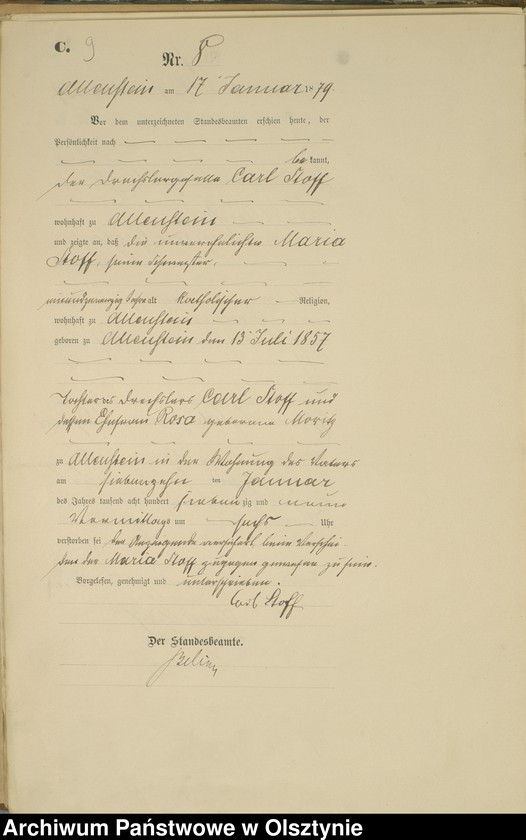 C. 9
Nr. 8
Allenstein am 17 Januar 1879.
Vor dem unterzeichneten Standesbeamten erschien heute, der
Persönlichkeit nach
bekannt,
der Drechslergeselle Carl Stoff
wohnhaft zu Allenstein
und zeigte an, daß die unverehelichte Maria
Stoff, seine Schwester,
alt katholischer Religion,
wohnhaft zu Allenstein
geboren zu Allenstein den 13 Juli 1857
Tochter des Drechslers Carl Stoff und
dessen Ehefrau Rosa geborene Moritz
zu Allenstein in der Wohnung des Vaters
am siebenzehn ten Januar
des Jahres tausend acht hundert siebenzig und neun
Vormittags um sechs Uhr
verstorben sei der Anzeigende versichert beim Verschei-
den der Maria Stoff zugegen gewesen zu sein.
Vorgelesen, genehmigt und unterschrieben.
Carl Stoff
Der Standesbeamte.
Archiwum Państwowe w Olsztynie